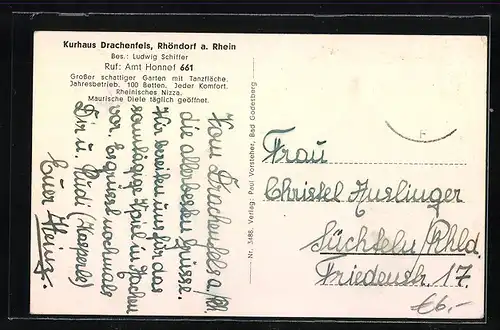 Kurhaus Drachenfels, Rhöndorf a. Rhein
Bes.: Ludwig Schiffer
Ruf: Amt Honnef 661
Großer schattiger Garten mit Tanzfläche.
Jahresbetrieb. 100 Betten. Jeder Komfort.
Rheinisches Nizza.
Maurische Diele täglich geöffnet.
Vom Drachenfels a/Rh.
die allerbesten Grüsse.
Wir bereiten uns für das
sonntägige Spiel in Aachen
vor. Es grüsst nochmals
Dir u. Rudi (Kasperle)
Euer Heinz.
Nr. 3488. Verlag: Paul Vorsteher, Bad Godesberg
Frau
Christel Auslinger
Süchteln/Rhld.
Friedenstr. 17.
€6.-